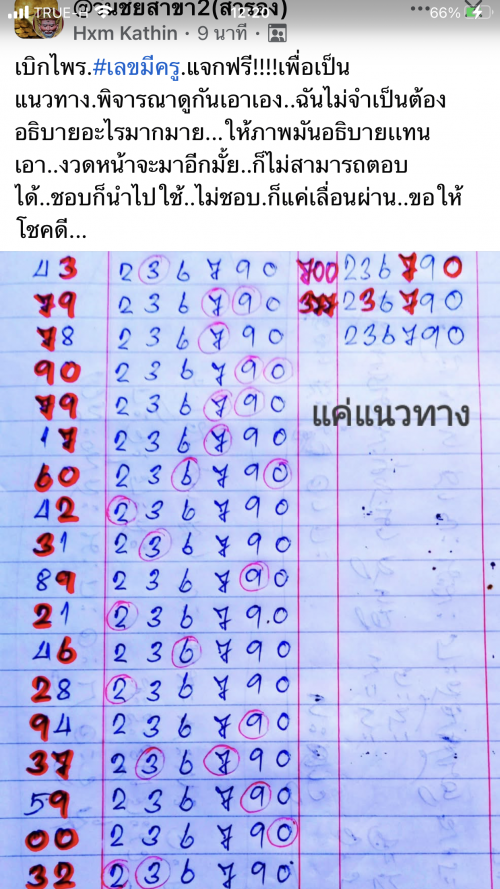 TRUE-H
12:20
66%
@วันชัยสาขา2(สำรอง)
Hxm Kathin · 9 นาที ·
เบิกไพร.#เลขมีครู.แจกฟรี!!!!เพื่อเป็น
แนวทาง.พิจารณาดูกันเอาเอง..ฉันไม่จำเป็นต้อง
อธิบายอะไรมากมาย...ให้ภาพมันอธิบายแทน
เอา..งวดหน้าจะมาอีกมั้ย..ก็ไม่สามารถตอบ
ได้..ชอบก็นำไปใช้..ไม่ชอบ.ก็แค่เลื่อนผ่าน..ขอให้
โชคดี...
43 2 3 6 7 9 0 700 236790
79 2 3 6 7 9 0 377 236790
78 2 3 6 7 9 0 236790
90 2 3 6 7 9 0
79 2 3 6 7 9 0
แค่แนวทาง
17 2 3 6 7 9 0
60 2 3 6 7 9 0
42 2 3 6 7 9 0
31 2 3 6 7 9 0
89 2 3 6 7 9 0
21 2 3 6 7 9.0
46 2 3 6 7 9 0
28 2 3 6 7 9 0
94 2 3 6 7 9 0
37 2 3 6 7 9 0
59 2 3 6 7 9 0
00 2 3 6 7 9 0
32 2 3 6 7 9 0